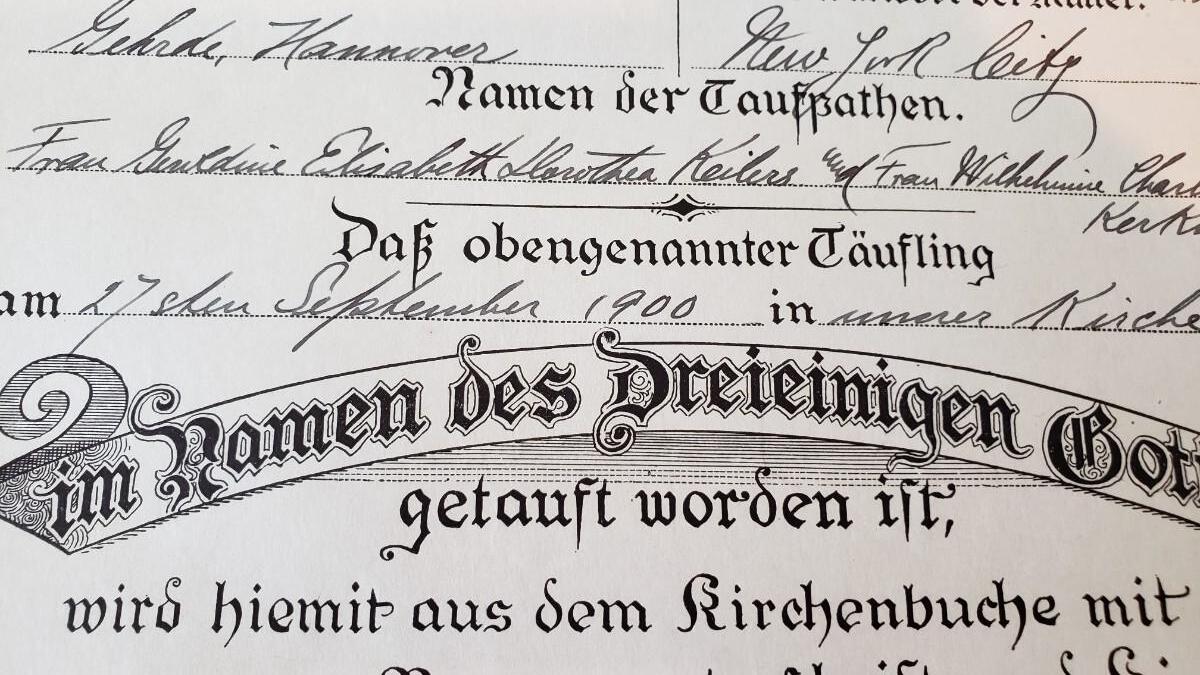 der Mutter.
Gehrde, Hannover New York City
Namen der Taufpathen.
Frau Geraldine Elisabeth Dorothea Keilers und Frau Wilhelmine
Daß obengenannter Täufling
am 27sten September 1900 in unserer Kirche
im Namen des Dreieinigen
getauft worden ist,
wird hiemit aus dem Kirchenbuche mit